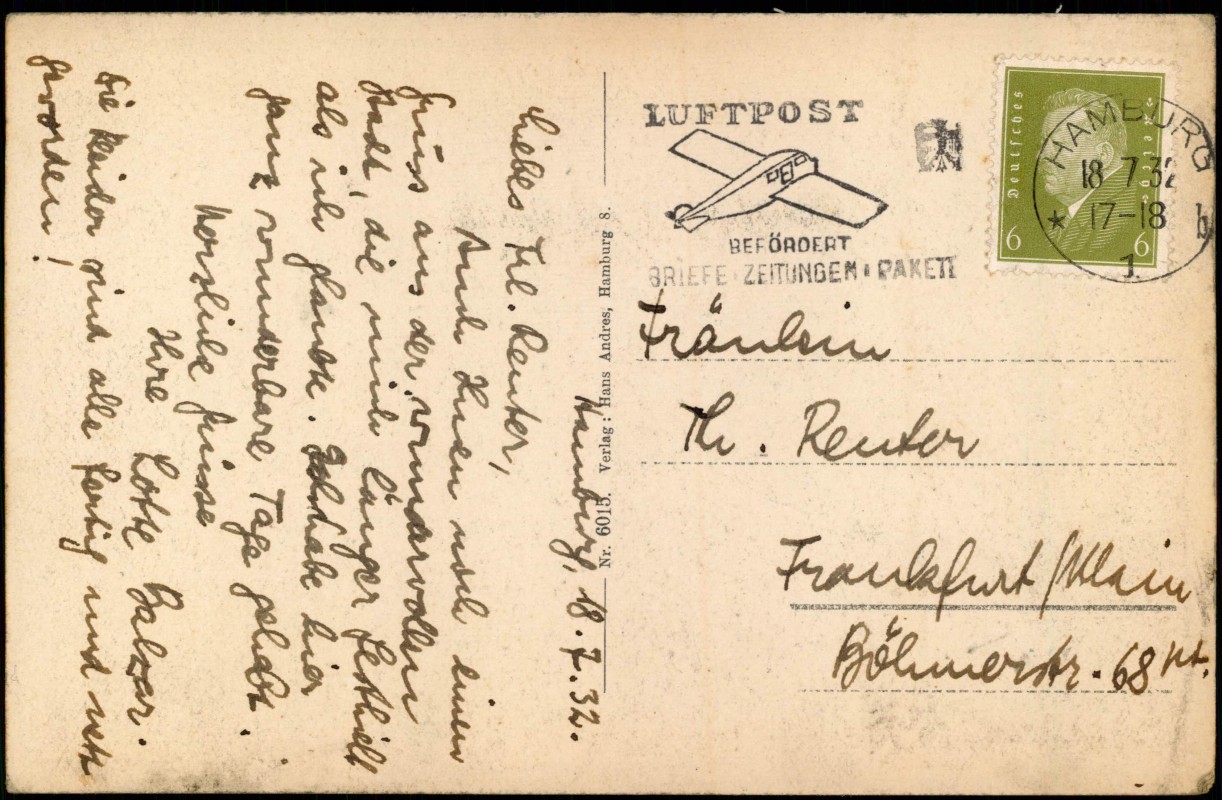 Hamburg, 18.7.32.
Liebes Frl. Reuter,
Auch Ihnen noch einen
Gruss aus der wundervollen
Stadt, die mich länger festhielt
als ich glaubte. Ich habe hier
ganz wunderbare Tage gehabt.
Herzliche Grüsse
Ihre Lotte Balzar.
Die Kleider sind alle fertig und nett
geworden!
Nr. 6015. Verlag: Hans Andres, Hamburg 8.
LUFTPOST
BEFÖRDERT
BRIEFE · ZEITUNGEN · PAKETE
Deutsches Reich
6 6
HAMBURG
18 7.32
* 17-18 b
1
Fräulein
Th. Reuter
Frankfurt/Main
Böhmerstr. 68 pt.